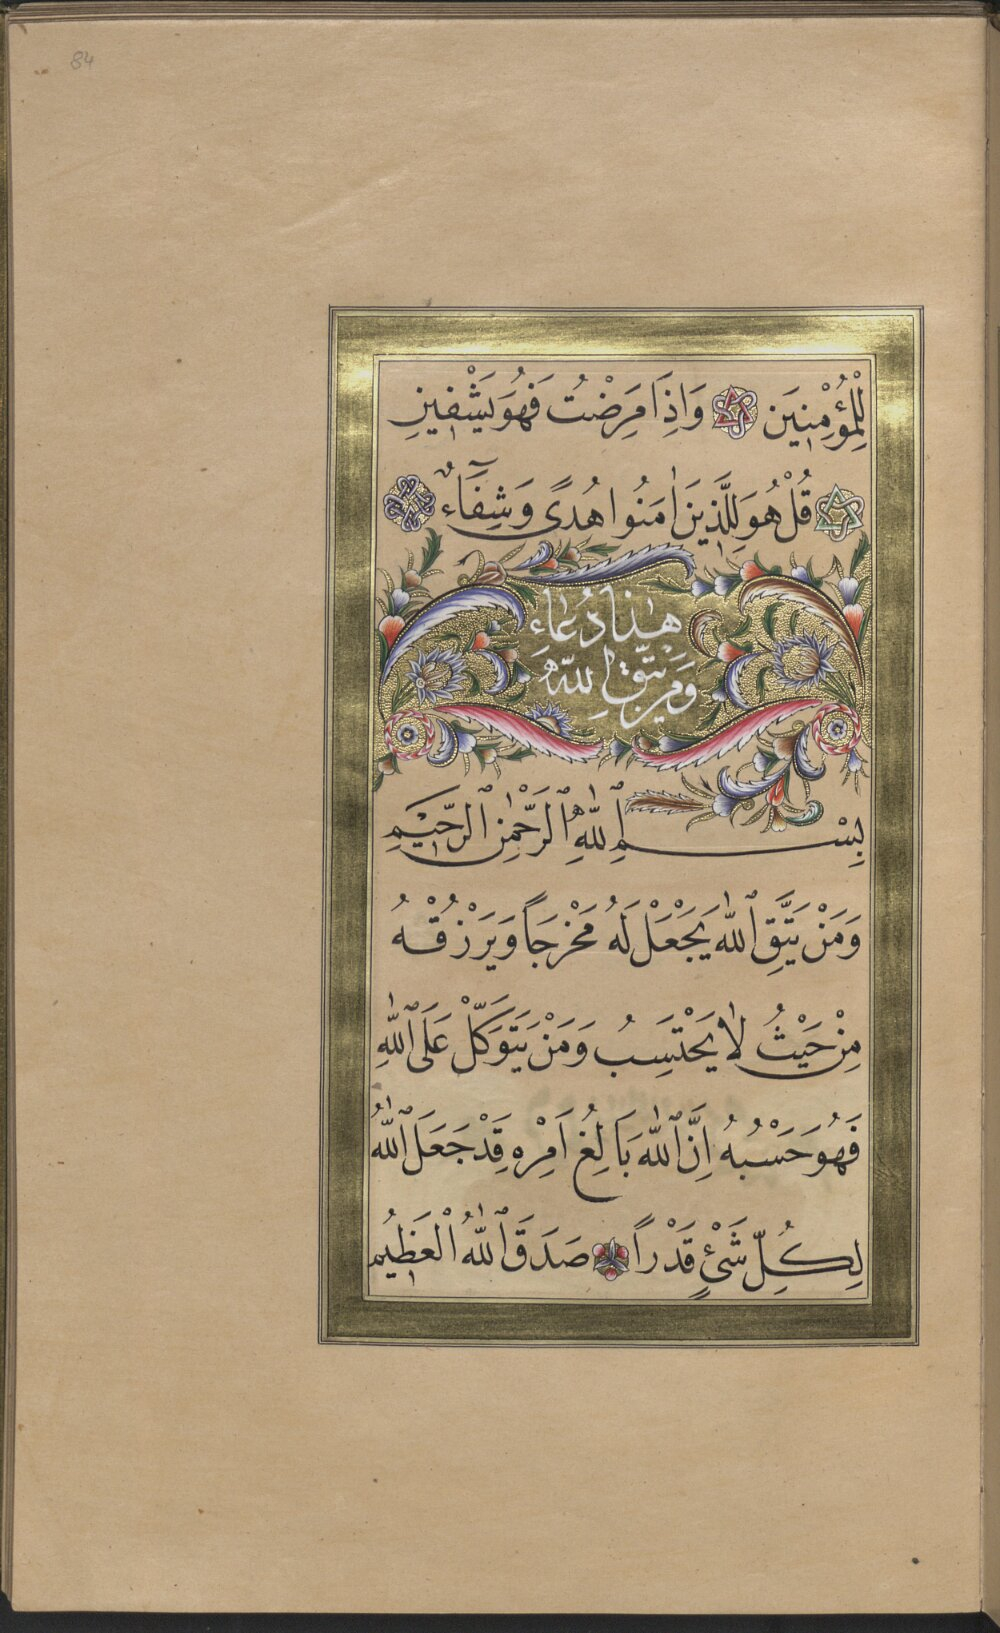 84
لِلْمُؤْمِنِينَ وَاِذَا مَرِضْتُ فَهُوَ يَشْفِينِ
قُلْ هُوَ لِلَّذِينَ اٰمَنُوا هُدًى وَشِفَٓاءٌ
هٰذَا دُعَاءِ
وَمَنْ يَتَّقِ اللّٰهَ
بِسْمِ ٱللّٰهِ ٱلرَّحْمٰنِ ٱلرَّحِيمِ
وَمَنْ يَتَّقِ ٱللّٰهَ يَجْعَلْ لَهُ مَخْرَجًا وَيَرْزُقْهُ
مِنْ حَيْثُ لَا يَحْتَسِبُ وَمَنْ يَتَوَكَّلْ عَلَى ٱللّٰهِ
فَهُوَ حَسْبُهُ اِنَّ ٱللّٰهَ بَالِغُ اَمْرِهِ قَدْ جَعَلَ ٱللّٰهُ
لِكُلِّ شَىْءٍ قَدْرًا صَدَقَ ٱللّٰهُ الْعَظِيمُ